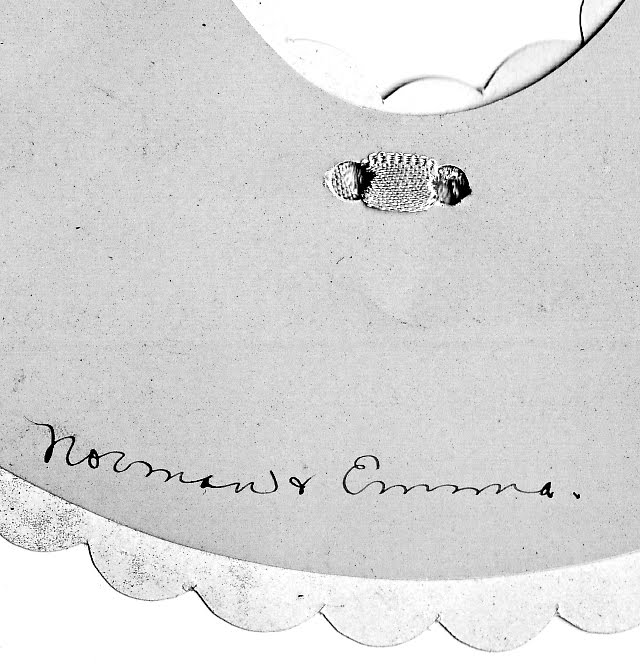 Norman & Emma.